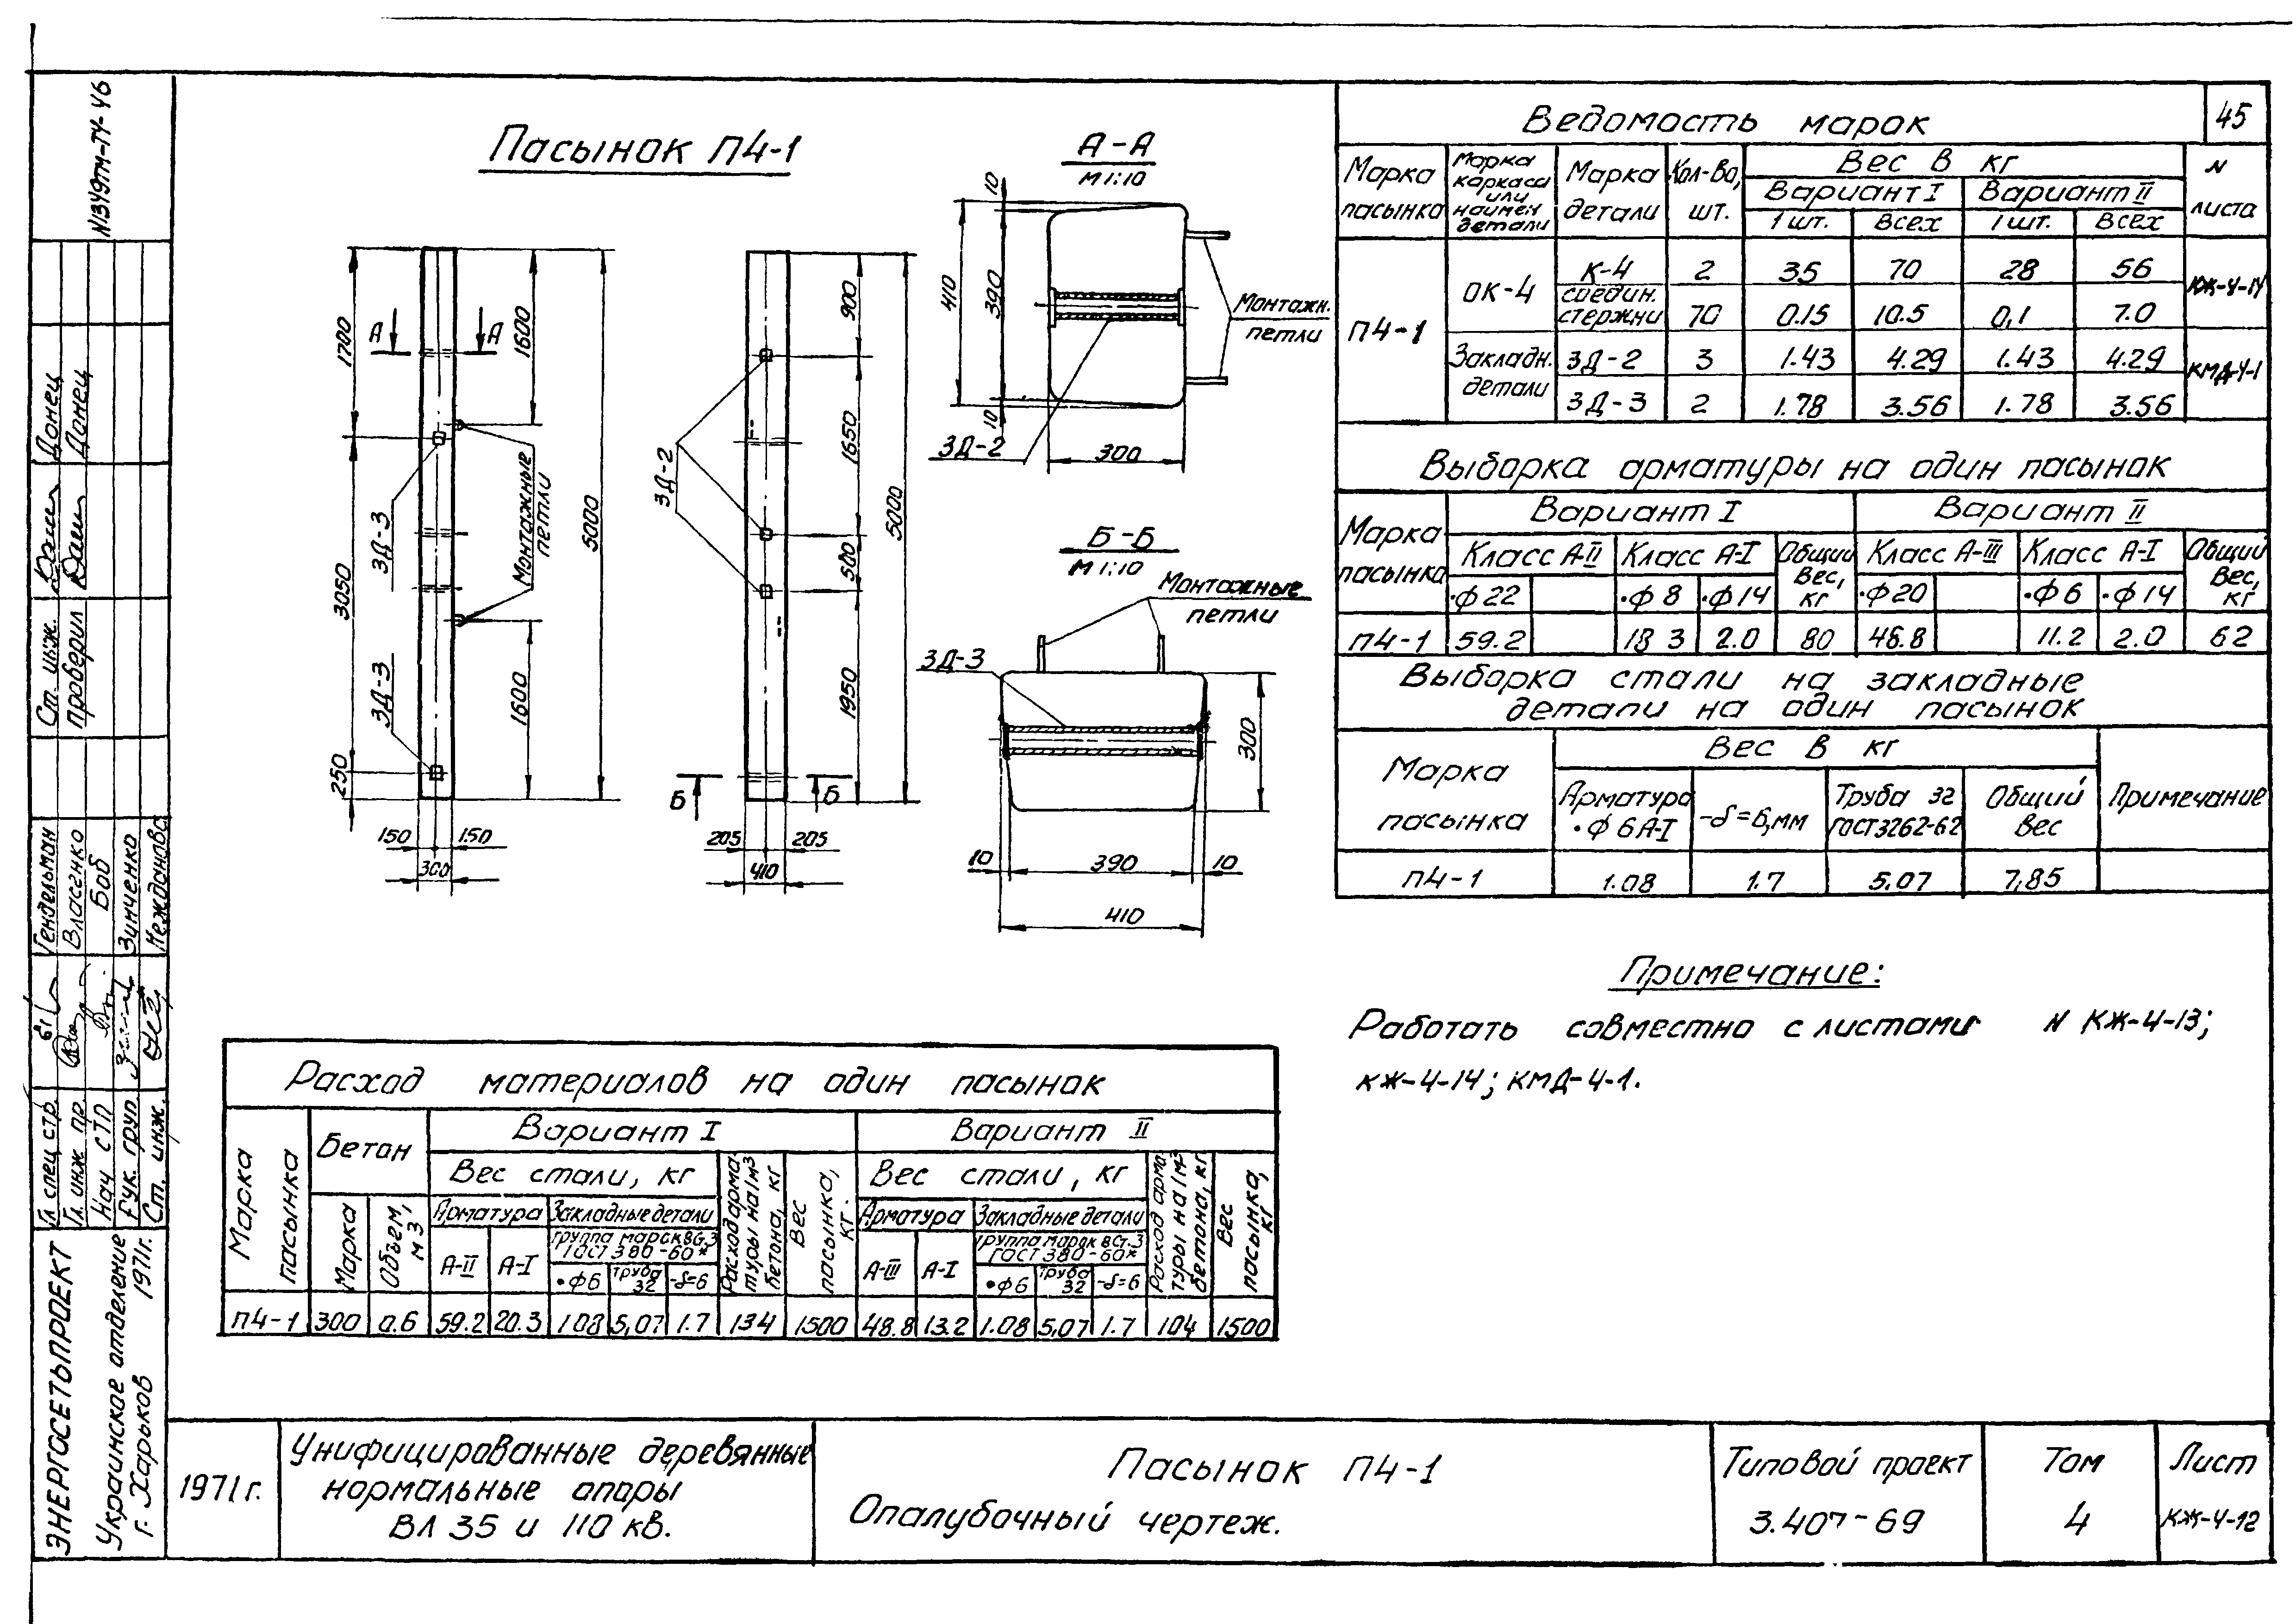 45
N1349тм-ТУ-46
Пасынок П4-1
А-А
М 1:10
10
410
390
10
300
Монтажн.
петли
ЗД-2
1700
А
А
1600
3050
250
5000
ЗД-3
ЗД-3
Монтажные
петли
1600
150
150
300
900
1650
500
1950
5000
ЗД-2
Б
Б
205
205
410
Б-Б
М 1:10
Монтажные
петли
ЗД-3
300
10
390
10
410
Ведомость марок
Марка пасынка
Марка каркаса или наимен детали
Марка детали
Кол-во, шт.
Вес в кг
Вариант I
Вариант II
1 шт.
Всех
1 шт.
Всех
N листа
П4-1
ОК-4
К-4 2 35 70 28 56
соедин. стержни 70 0.15 10.5 0,1 7.0
КЖ-4-14
Закладн. детали
ЗД-2 3 1.43 4.29 1.43 4.29
ЗД-3 2 1.78 3.56 1.78 3.56
КМД-4-1
Выборка арматуры на один пасынок
Марка пасынка
Вариант I
Вариант II
Класс А-II
Класс А-I
Общий вес, кг
Класс А-III
Класс А-I
Общий вес, кг
•ф22 •ф8 •ф14 •ф20 •ф6 •ф14
П4-1 59.2 18 3 2.0 80 48.8 11.2 2.0 62
Выборка стали на закладные
детали на один пасынок
Марка пасынка
Вес в кг
Примечание
Арматура •ф6А-I
-δ=6,мм
Труба 32 ГОСТ3262-62
Общий вес
П4-1 1.08 1.7 5,07 7,85
Примечание:
Работать совместно с листами N КЖ-4-13;
КЖ-4-14; КМД-4-1.
Расход материалов на один пасынок
Марка пасынка
Бетон
Марка
Объем, м3
Вариант I
Вес стали, кг
Арматура
А-II
А-I
Закладные детали
группа марок ВСт.3
ГОСТ 380-60*
•ф6
Труба 32
-δ=6
Расход арматуры на 1м3 бетона, кг
Вес пасынка, кг.
Вариант II
Вес стали, кг
Арматура
А-III
А-I
Закладные детали
группа марок ВСт.3
ГОСТ 380-60*
•ф6
Труба 32
-δ=6
Расход арматуры на 1м3 бетона, кг
Вес пасынка, кг
П4-1 300 0.6 59.2 20.3 1.08 5,07 1.7 134 1500 48.8 13.2 1.08 5,07 1.7 104 1500
Ст. инж. Донец
Проверил Донец
Гл спец стр. Гендельман
Гл. инж. пр. Власенко
Нач СТП Боб
Рук. груп. Зинченко
Ст. инж. Нежданова
ЭНЕРГОСЕТЬПРОЕКТ
Украинское отделение
г. Харьков 1971г.
1971г.
Унифицированные деревянные
нормальные опоры
ВЛ 35 и 110 кв.
Пасынок П4-1
Опалубочный чертеж.
Типовой проект
3.407-69
Том
4
Лист
КЖ-4-12